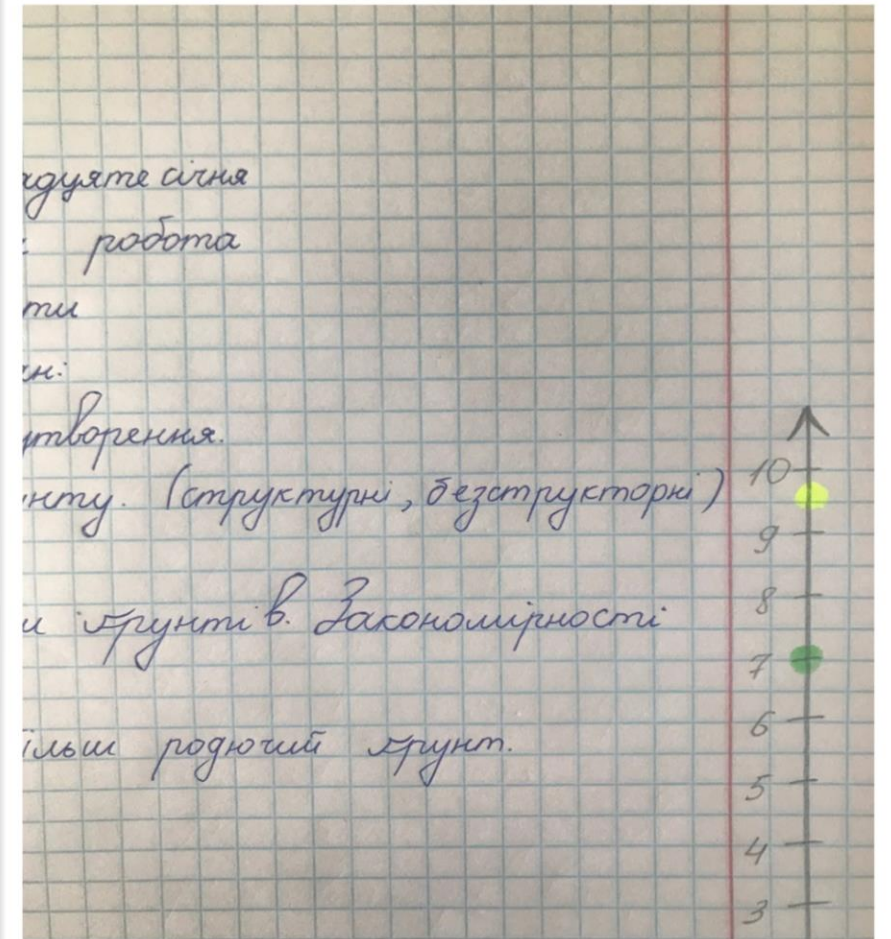 дцяте січня
робота
ти
н:
утворення.
нту. (структурні, безструкторні)
и ґрунтів. Закономірності
ільш родючий ґрунт.
10
9
8
7
6
5
4
3